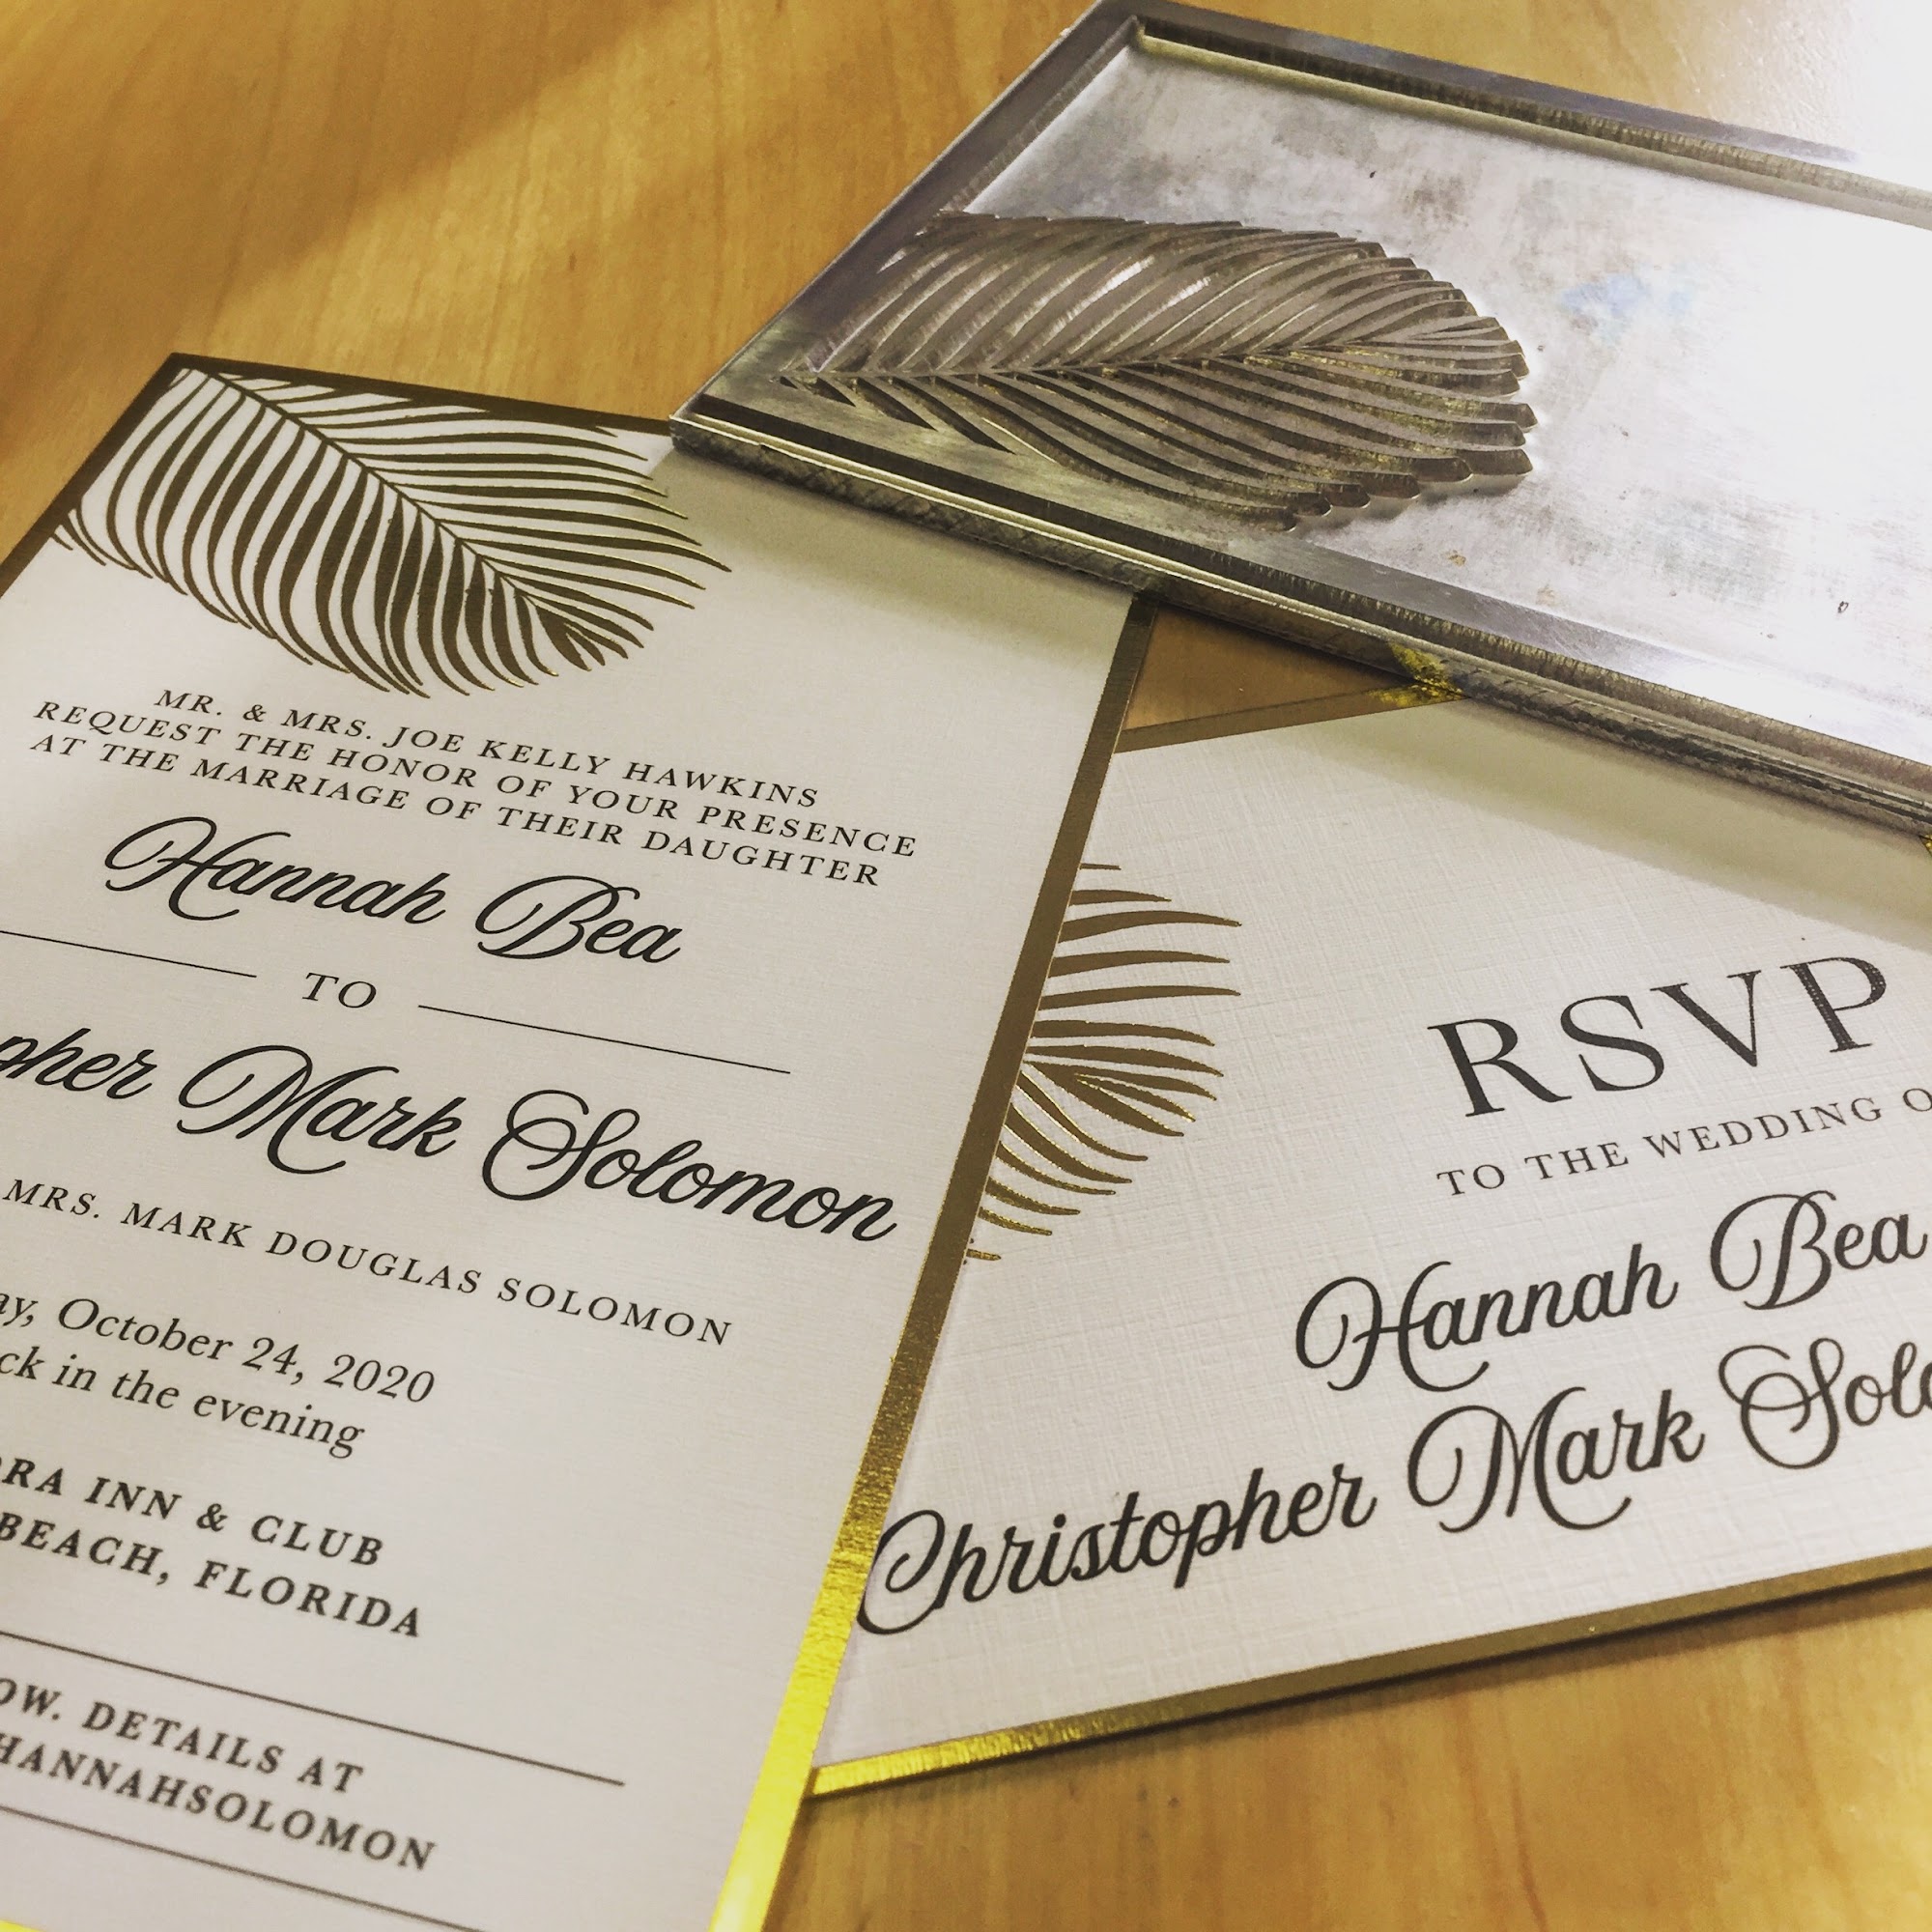 MR. & MRS. JOE KELLY HAWKINS
REQUEST THE HONOR OF YOUR PRESENCE
AT THE MARRIAGE OF THEIR DAUGHTER
Hannah Bea
TO
pher Mark Solomon
MRS. MARK DOUGLAS SOLOMON
ay, October 24, 2020
ck in the evening
RA INN & CLUB
BEACH, FLORIDA
OW. DETAILS AT
HANNAHSOLOMON
RSVP
TO THE WEDDING O
Hannah Bea
Christopher Mark Solo